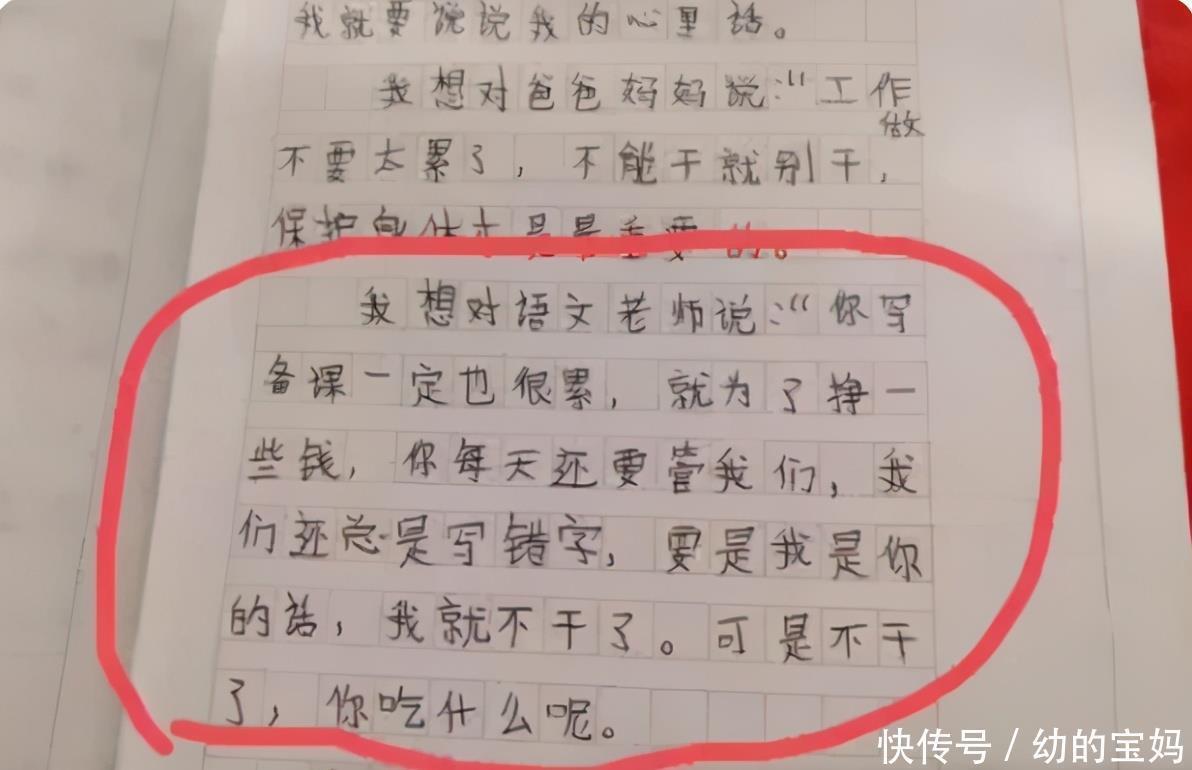 我就要说说我的心里话。
我想对爸爸妈妈说:“工作
做
不要太累了，不能干就别干，
保护身体才是最重要的。
我想对语文老师说:“你写
备课一定也很累，就为了挣一
些钱，你每天还要管我们，我
们还总是写错字，要是我是你
的话，我就不干了。可是不干
了，你吃什么呢。
快传号 / 幼的宝妈